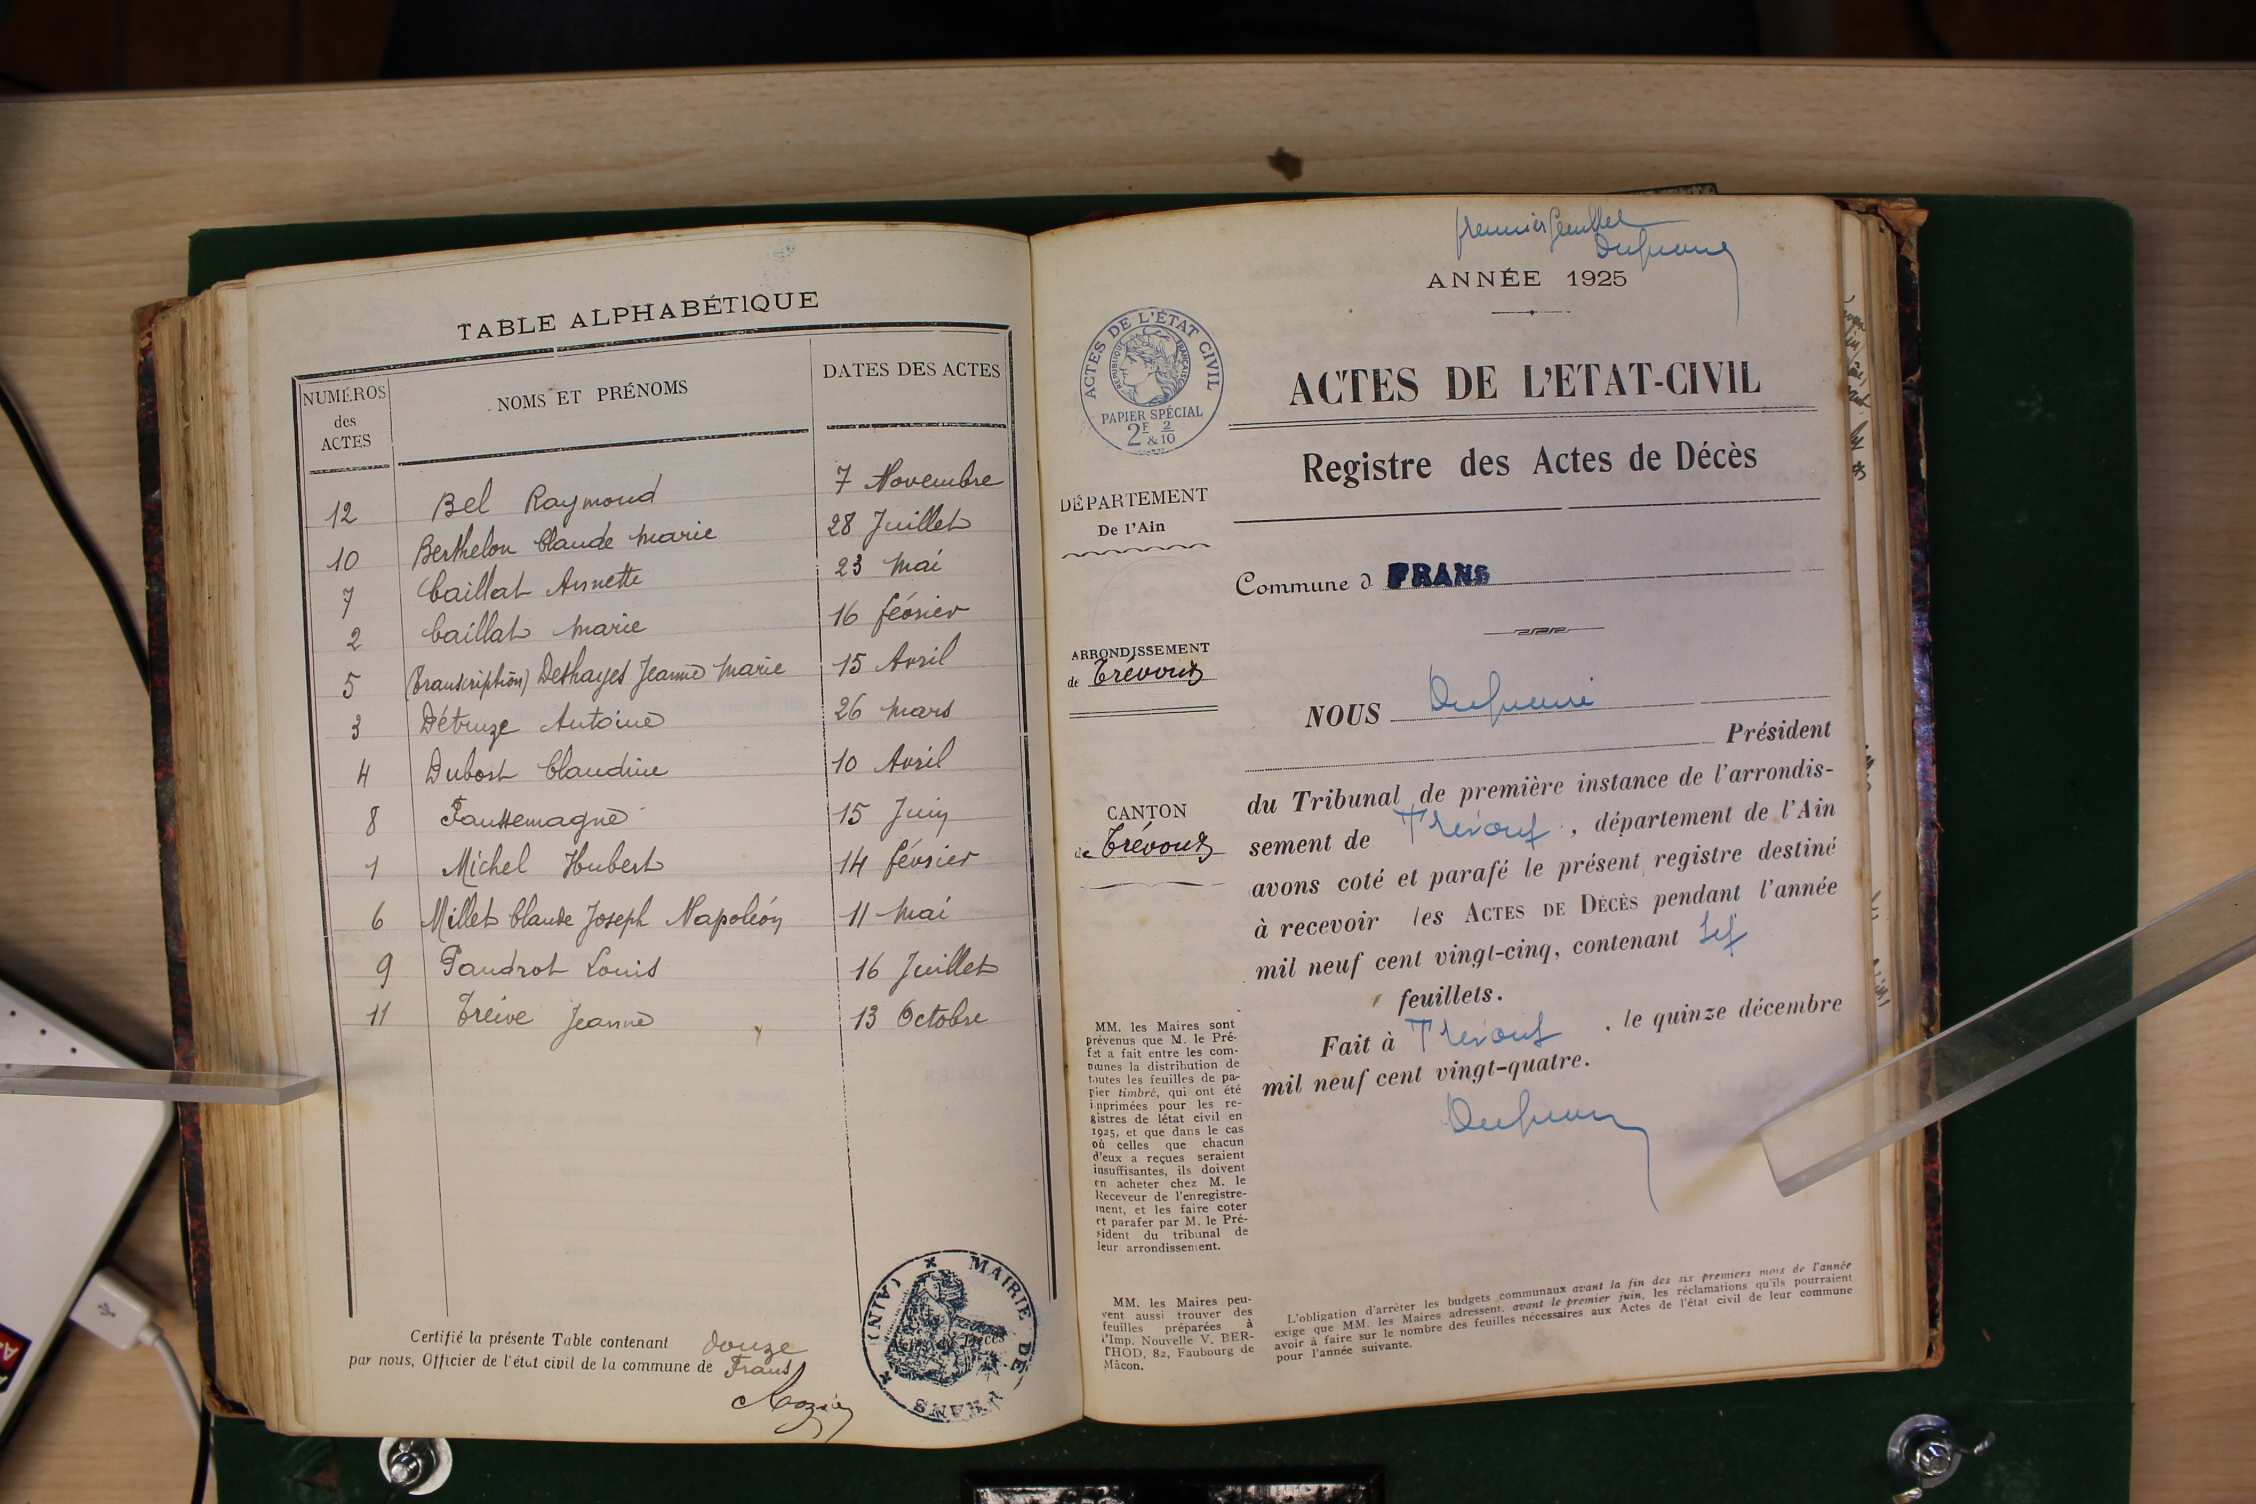 TABLE ALPHABÉTIQUE
NUMÉROS des ACTES
NOMS ET PRÉNOMS
DATES DES ACTES
12 Bel Raymond 7 Novembre
10 Berthelon Claude Marie 28 Juillet
7 Caillat Annette 23 Mai
2 Caillat Marie 16 février
5 (transcription) Deshayes Jeanne Marie 15 Avril
3 Détruze Antoine 26 Mars
4 Dubost Claudine 10 Avril
8 Faussemagne 15 Juin
1 Michel Hubert 14 février
6 Millet Claude Joseph Napoléon 11 Mai
9 Paudrot Louis 16 Juillet
11 Trêive Jeanne 13 Octobre
Certifié la présente Table contenant douze
par nous, Officier de l'état civil de la commune de Frans
MAIRIE DE FRANS (AIN)
premier feuillet
ANNÉE 1925
ACTES DE L'ÉTAT CIVIL
RÉPUBLIQUE FRANÇAISE
PAPIER SPÉCIAL
2F & 2/10
ACTES DE L'ETAT-CIVIL
Registre des Actes de Décès
DÉPARTEMENT
De l'Ain
Commune d FRANS
ARRONDISSEMENT
de Trévoux
CANTON
de Trévoux
NOUS
Président
du Tribunal de première instance de l'arrondis-
sement de Trévoux, département de l'Ain
avons coté et parafé le présent registre destiné
à recevoir les ACTES DE DÉCÈS pendant l'année
mil neuf cent vingt-cinq, contenant
feuillets.
Fait à Trévoux, le quinze décembre
mil neuf cent vingt-quatre.
MM. les Maires sont
prévenus que M. le Pré-
fet a fait entre les com-
munes la distribution de
toutes les feuilles de pa-
pier timbré, qui ont été
imprimées pour les re-
gistres de létat civil en
1925, et que dans le cas
où celles que chacun
d'eux a reçues seraient
insuffisantes, ils doivent
en acheter chez M. le
Receveur de l'enregistre-
ment, et les faire coter
et parafer par M. le Pré-
sident du tribunal de
leur arrondissement.
MM. les Maires peu-
vent aussi trouver des
feuilles préparées à
l'Imp. Nouvelle V. BER-
THOD, 82, Faubourg de
Mâcon.
L'obligation d'arrêter les budgets communaux avant la fin des six premiers mois de l'année
exige que MM. les Maires adressent, avant le premier juin, les réclamations qu'ils pourraient
avoir à faire sur le nombre des feuilles nécessaires aux Actes de l'état civil de leur commune
pour l'année suivante.